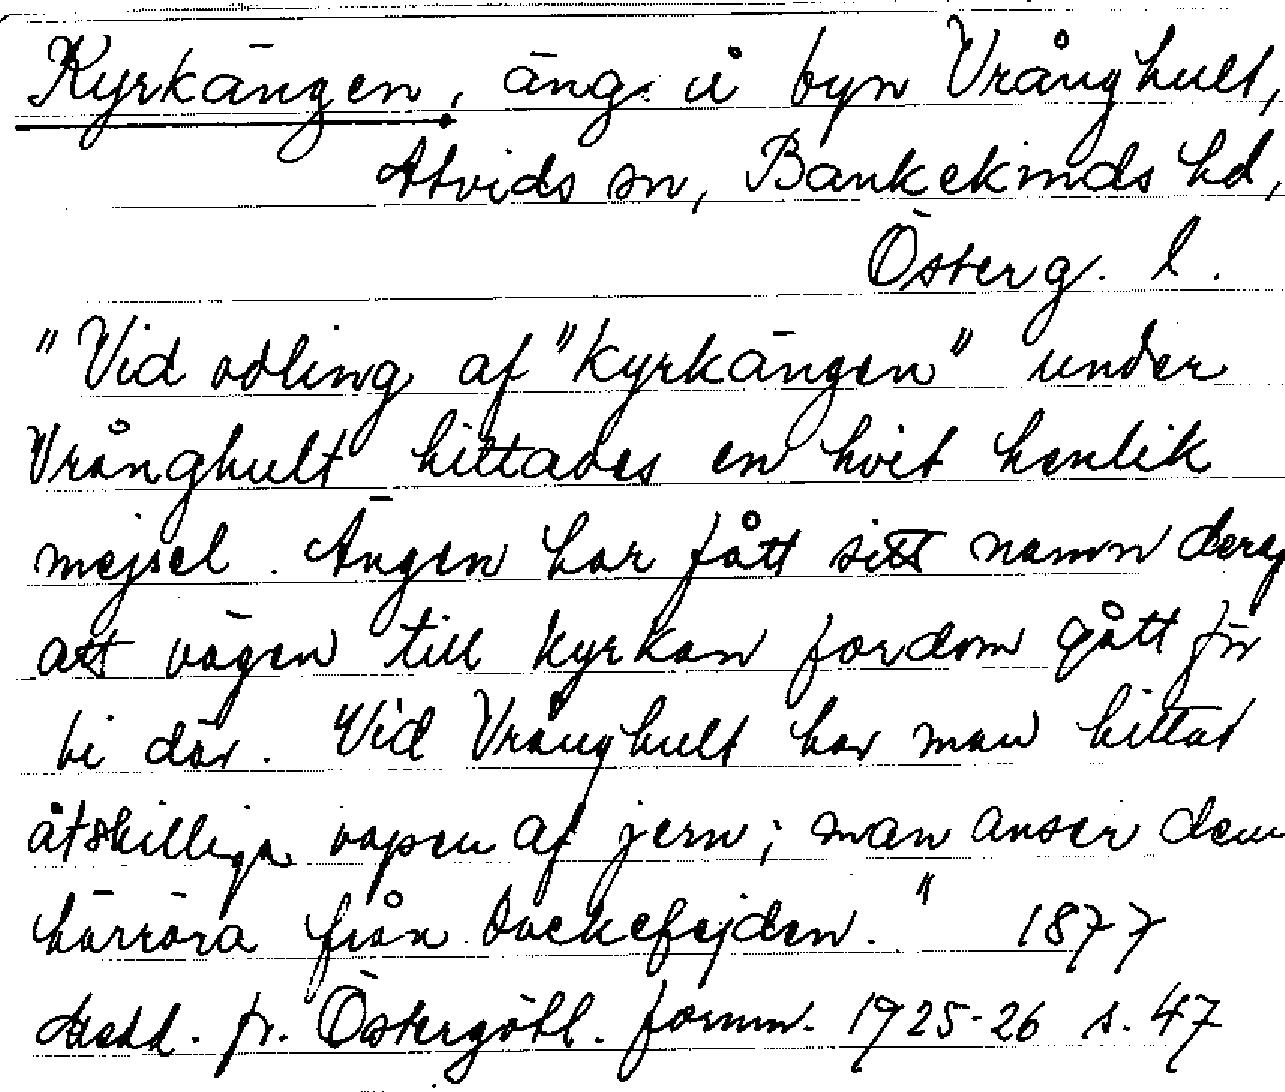 Kyrkängen, äng i byn Vrånghult,
Åtvids sn, Bankekinds hd,
Österg. l.
"Vid odling af "Kyrkängen" under
Vrånghult hittades en hvit henlik
mejsel. Ängen har fått sitt namn deraf
att vägen till kyrkan fordom gått för
bi där. Vid Vrånghult har man hittat
åtskilliga vapen af jern; man anser dem
härröra från Dackefejden." 1877
Medd. fr. Östergötl. fornm. 1925-26 s. 47